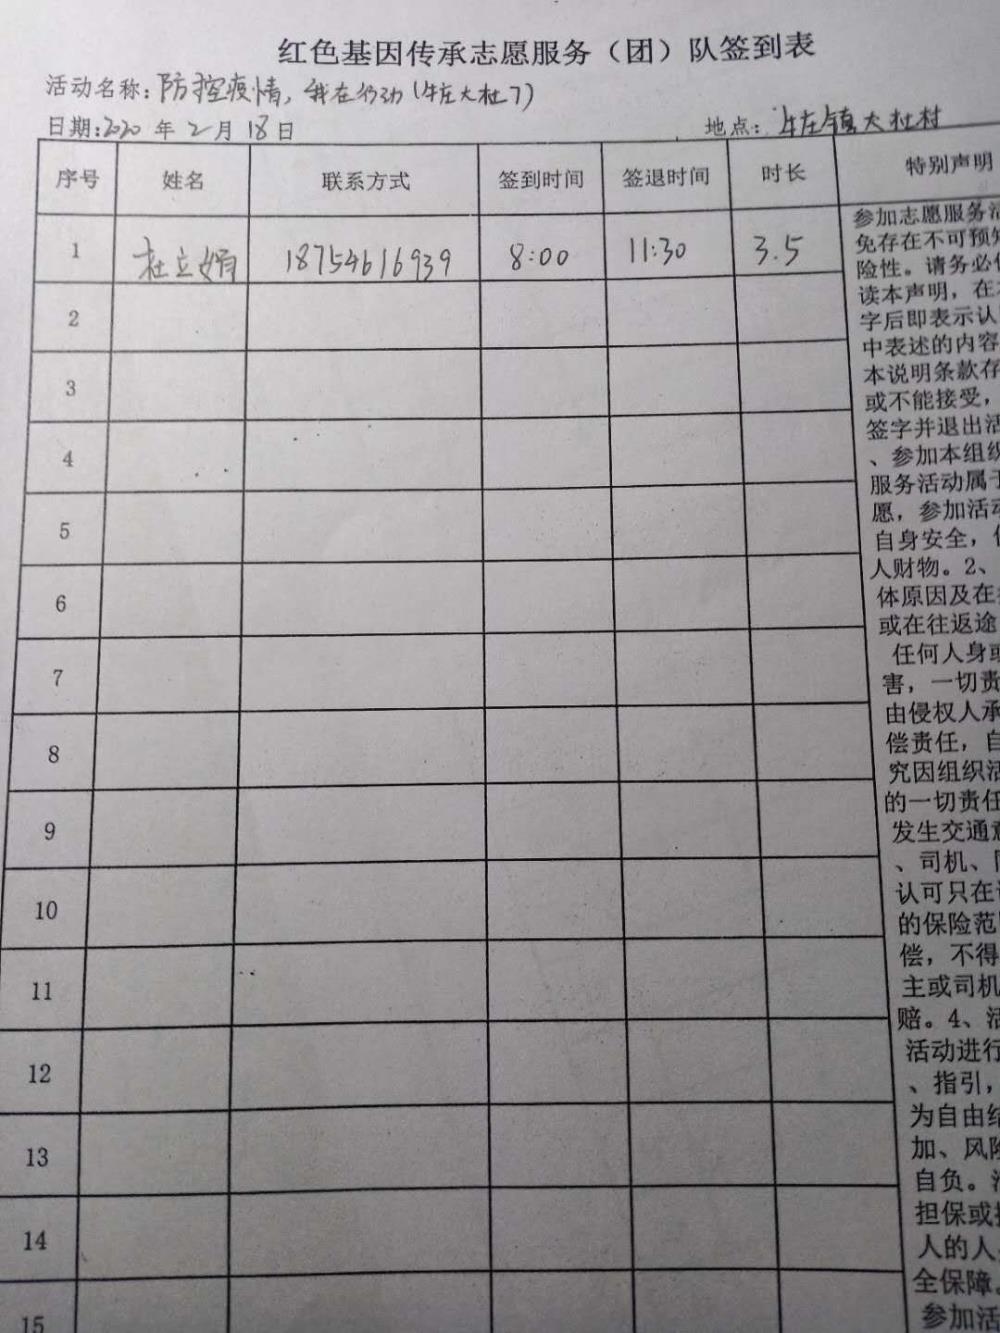 红色基因传承志愿服务（团）队签到表
活动名称：防控疫情，我在行动（牛庄大杜7）
日期：2020 年 2 月 18 日 地点：牛庄镇大杜村
序号 姓名 联系方式 签到时间 签退时间 时长 特别声明
1 杜立娟 18754616939 8:00 11:30 3.5
2
3
4
5
6
7
8
9
10
11
12
13
14
15
参加志愿服务活
免存在不可预知
险性。请务必仔
读本声明，在
字后即表示认
中表述的内容
本说明条款存
或不能接受，
签字并退出活
、参加本组织
服务活动属于
愿，参加活动
自身安全，
人财物。2、
体原因及在
或在往返途
任何人身或
害，一切责
由侵权人承
偿责任，自
究因组织活
的一切责任
发生交通意
、司机、
认可只在
的保险范
偿，不得
主或司机
赔。4、活
活动进行
、指引，
为自由结
加、风险
自负。
担保或
人的人
全保障。
参加活